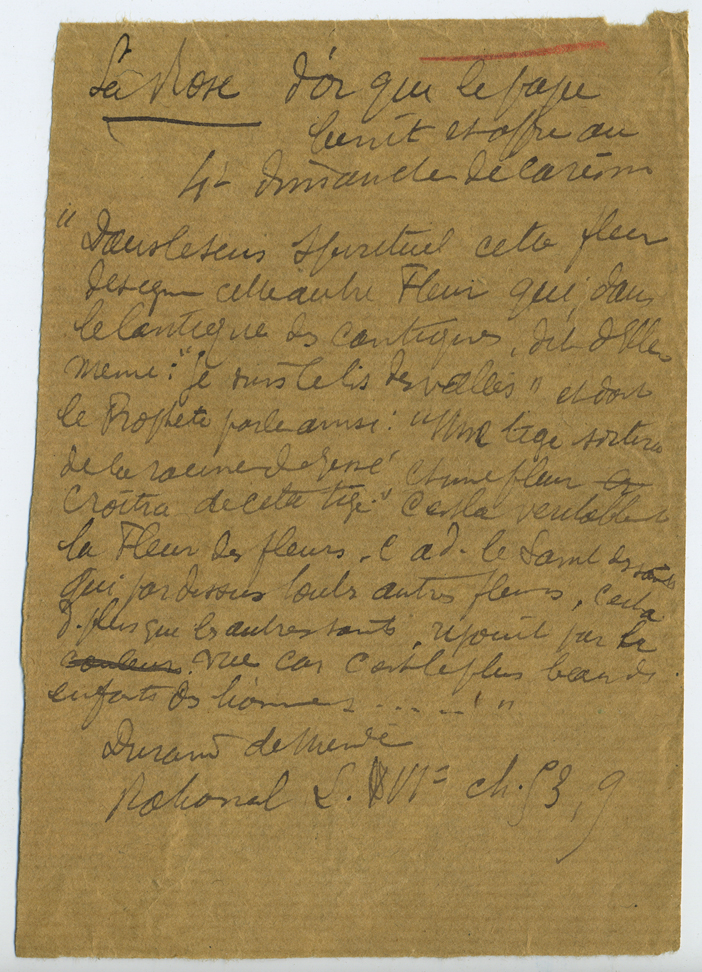 La Rose d'or que le pape
benit et offre au
4e dimanche de Carême
"Dans le sens spirituel cette fleur
designe cette autre Fleur qui, dans
le Cantique des cantiques, dit d'Elle
meme : "Je suis le lis des vallées" et dont
le Prophete parle ainsi : "Une tige sortira
de la racine de Jessé et une fleur
croîtra de cette tige." C'est la veritablement
la Fleur des fleurs, c a d. le Saint des saints
qui par dessus toutes autres fleurs, c'est a
d. plus que les autres saints, rejouit par la
couleur vue car c'est le plus beau des
enfants des hommes ....."
Durand de Mende
Rational L. VIe ch. 53, 9